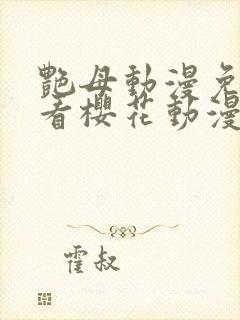 艷母動漫免
看櫻花動漫
霍叔